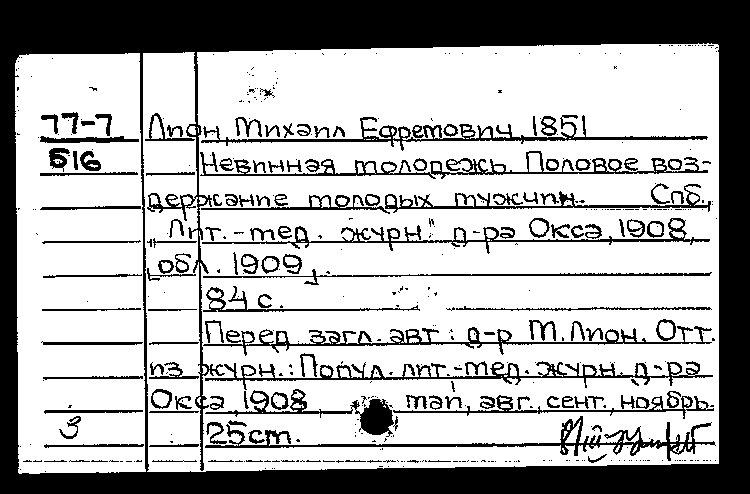 77-7 Лион, Михаил Ефремович, 1851
516 Невинная молодежь. Половое воз-
держание молодых мужчин. Спб.,
"Лит.-мед. журн." д-ра Окса, 1908,
[обл. 1909].
84 с.
Перед загл. авт.: д-р М. Лион. Отт.
из журн.: Попул. лит.-мед. журн. д-ра
Окса, 1908, май, авг., сент., ноябрь.
3 25cm.